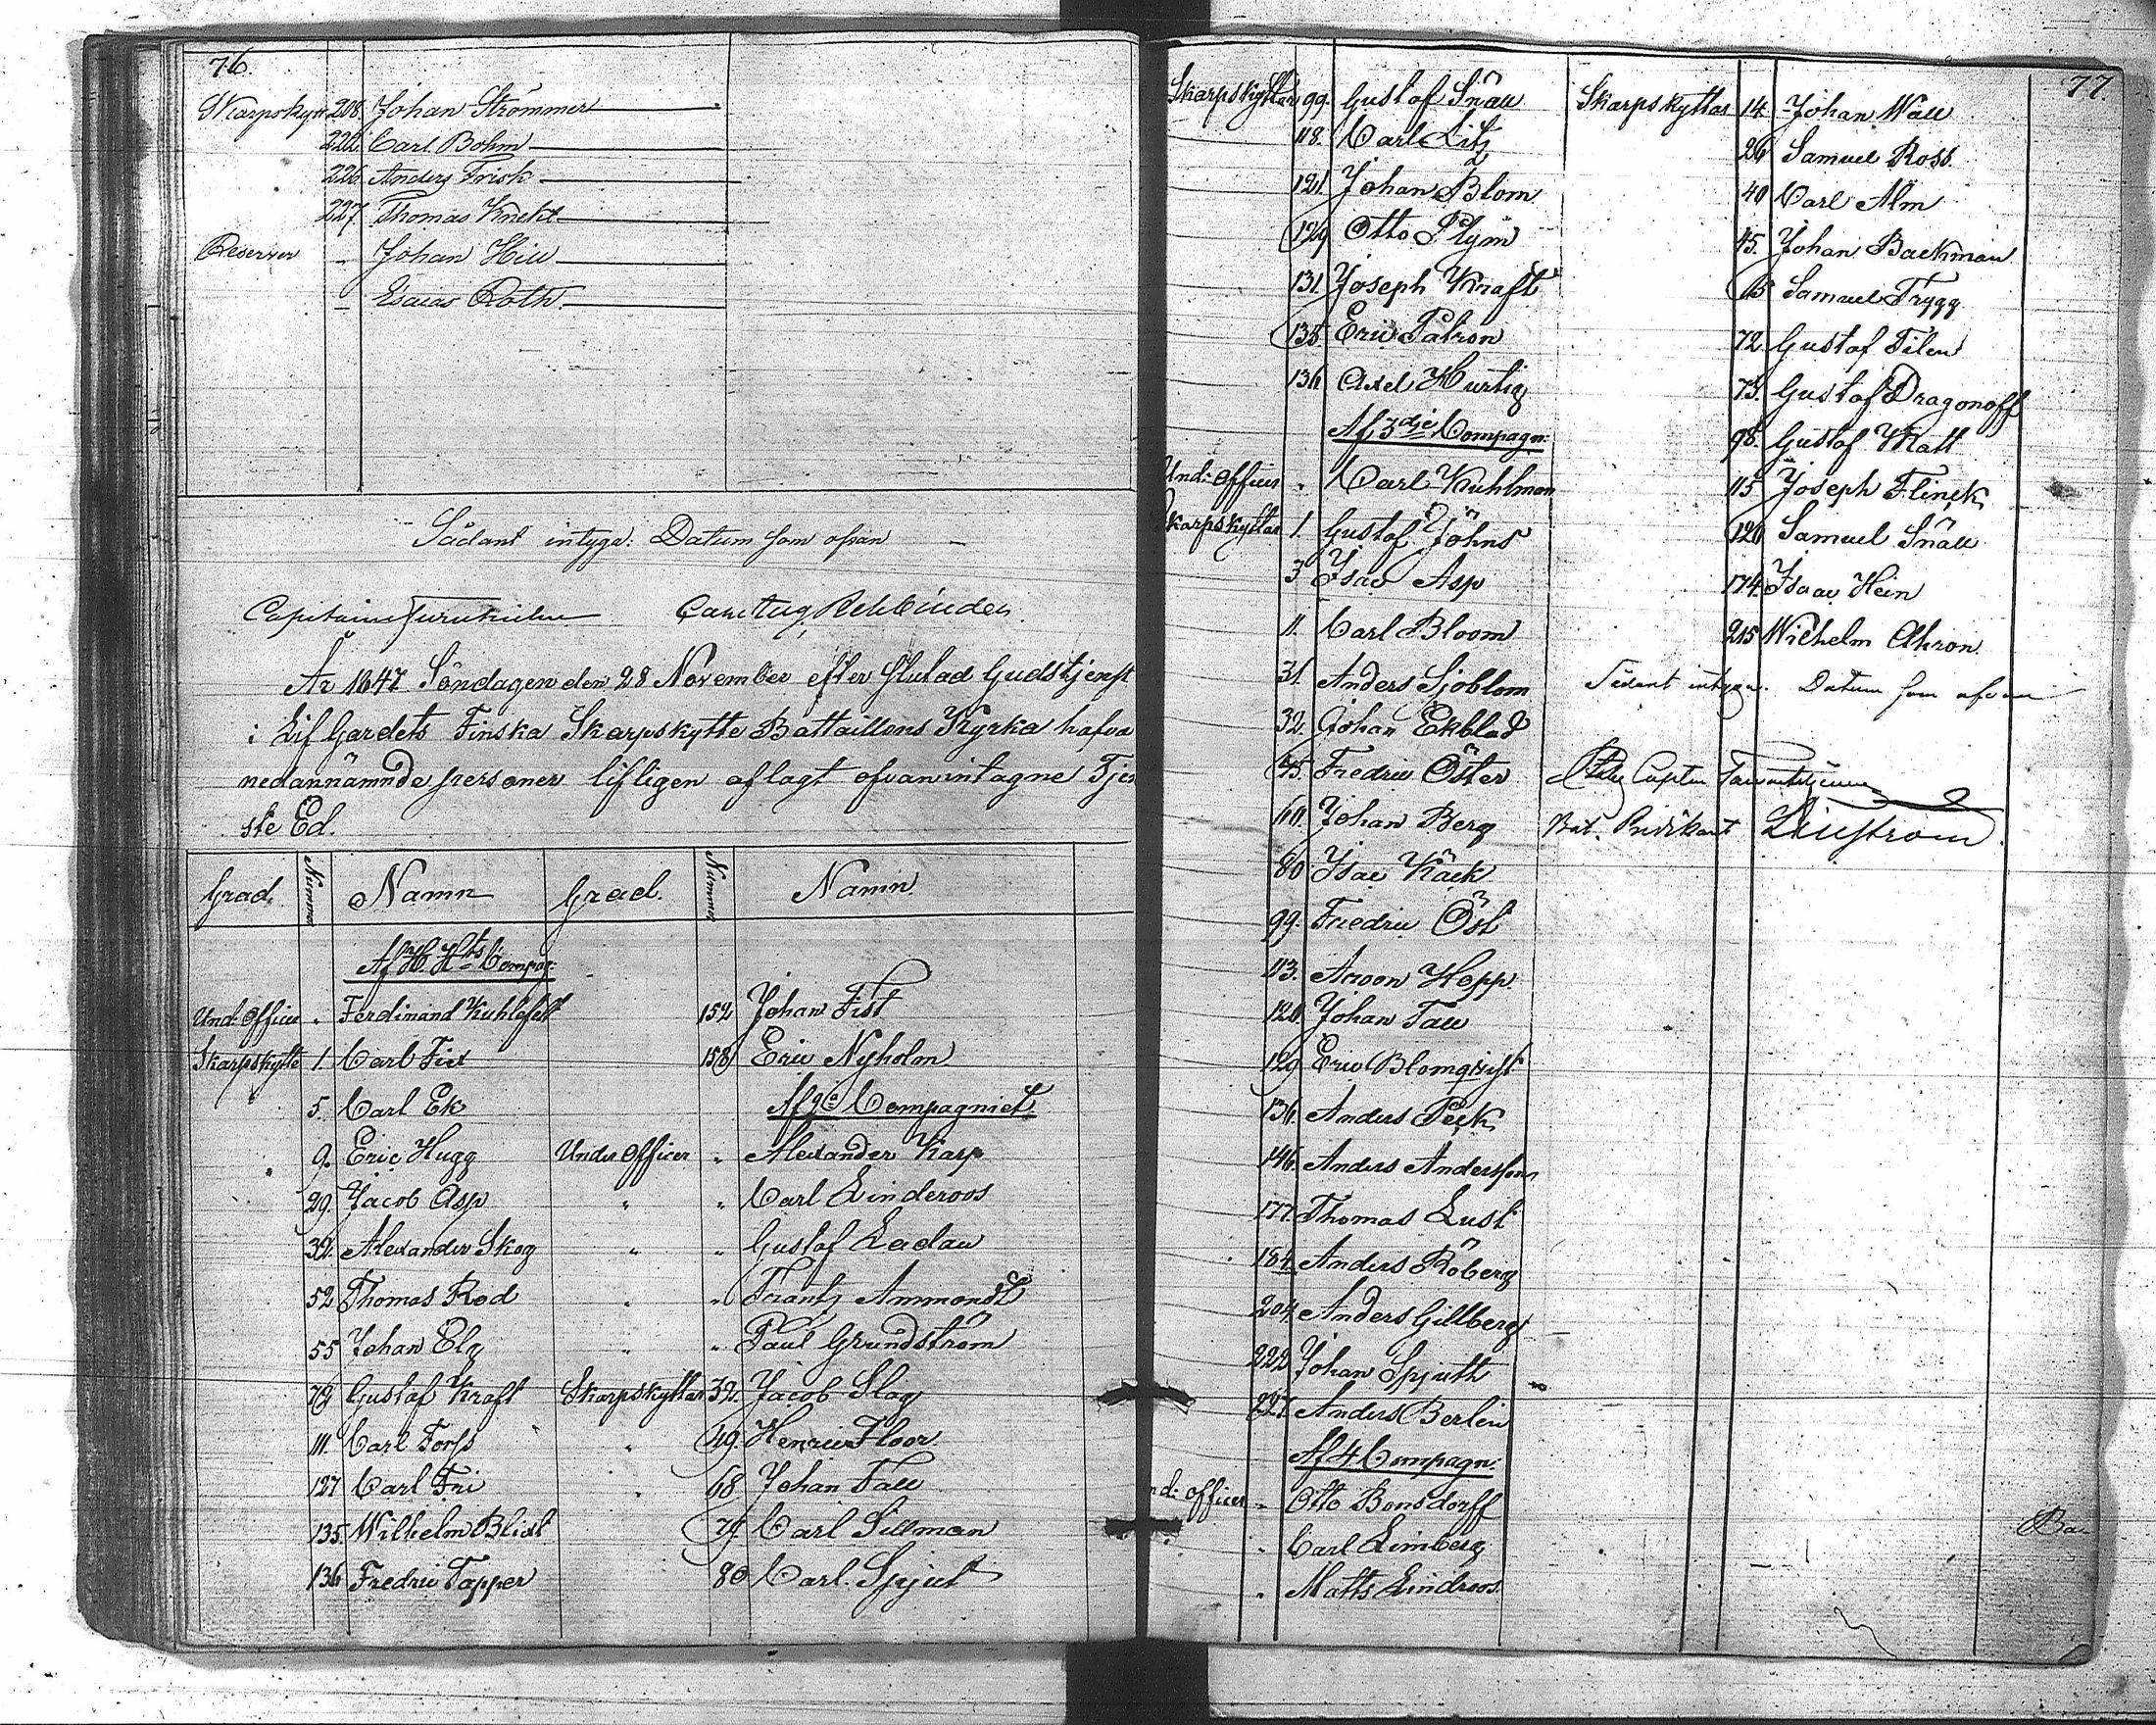 76.
Skarpskytt 208. Johan Strömmer
222. Carl Bohm
226. Anders Frisk
227. Thomas Knekt
Reserver Johan Hill
Esaias Roth
Sådant intyga. Datum som ofvan
Capitaine Carl Aug. Rehbinder
År 1847 Söndagen den 28 November efter slutad Gudstjenst
i Lif Gardets Finska Skarpskytte Battaillons Kyrka hafva
nedannämnde personer lifligen aflagt ofvanintagne Tjen
ste Ed.
Grad. Nummer Namn Grad. Nummer Namn
Af H. Hts Compag:
Und: Officer " Ferdinand Kuhlefelt 152 Johan Fist
Skarpskytte 1. Carl Fix 158 Eric Nyholm
5. Carl Ek Af 2a Compagniet
9. Eric Hugg Under Officer " Alexander Karp
29. Jacob Asp " " Carl Linderoos
32. Alexander Skog " " Gustaf Ladau
52 Thomas Rod " " Frantz Ammondt
55 Johan Elg " " Paul Grundström
72 Gustaf Kraft Skarpskyttar 32. Jacob Slag
111. Carl Forss " 49. Henric Floor
127 Carl Fri " 68 Johan Fall
135. Wilhelm Blixt 74 Carl Sillman
136 Fredric Tapper 80 Carl Spjut
77.
Skarpskyttar 99. Gustaf Snäll
118. Carl Litz
121. Johan Blom
129 Otto Plym
131 Joseph Kraft
135. Eric Patron
136 Axel Hurtig
Af 3dje Compagn:
Und: Officer " Carl Kuhlman
Skarpskyttar 1. Gustaf Johns
3 Isac Asp
11. Carl Bloom
31. Anders Sjöblom
32. Johan Ekblad
45. Fredric Öster
60. Johan Berg
80 Isac Käck
99. Fredric Öst
113. Aroon Hopp
120. Johan Tall
129 Eric Blomqvist
136. Anders Peck
146. Anders Andersson
177. Thomas Lust
184. Anders Röberg
204. Anders Gillberg
222 Johan Spjuth
227. Anders Berlin
Af 4 Compagn:
nd: officer " Otto Bonsdorff
" Carl Limberg
" Matts Lindroos
Skarpskyttar 14. Johan Wall
26 Samuel Ross.
40 Carl Alm
45. Johan Backman
65 Samuel Trygg
72 Gustaf Filen
73. Gustaf Dragonoff
98. Gustaf Matt
115 Joseph Flinck
120 Samuel Snäll
174. Isaac Hein
215 Wilhelm Ahron
Sådant intyga. Datum som ofvan
Bat. Predikant
Ba